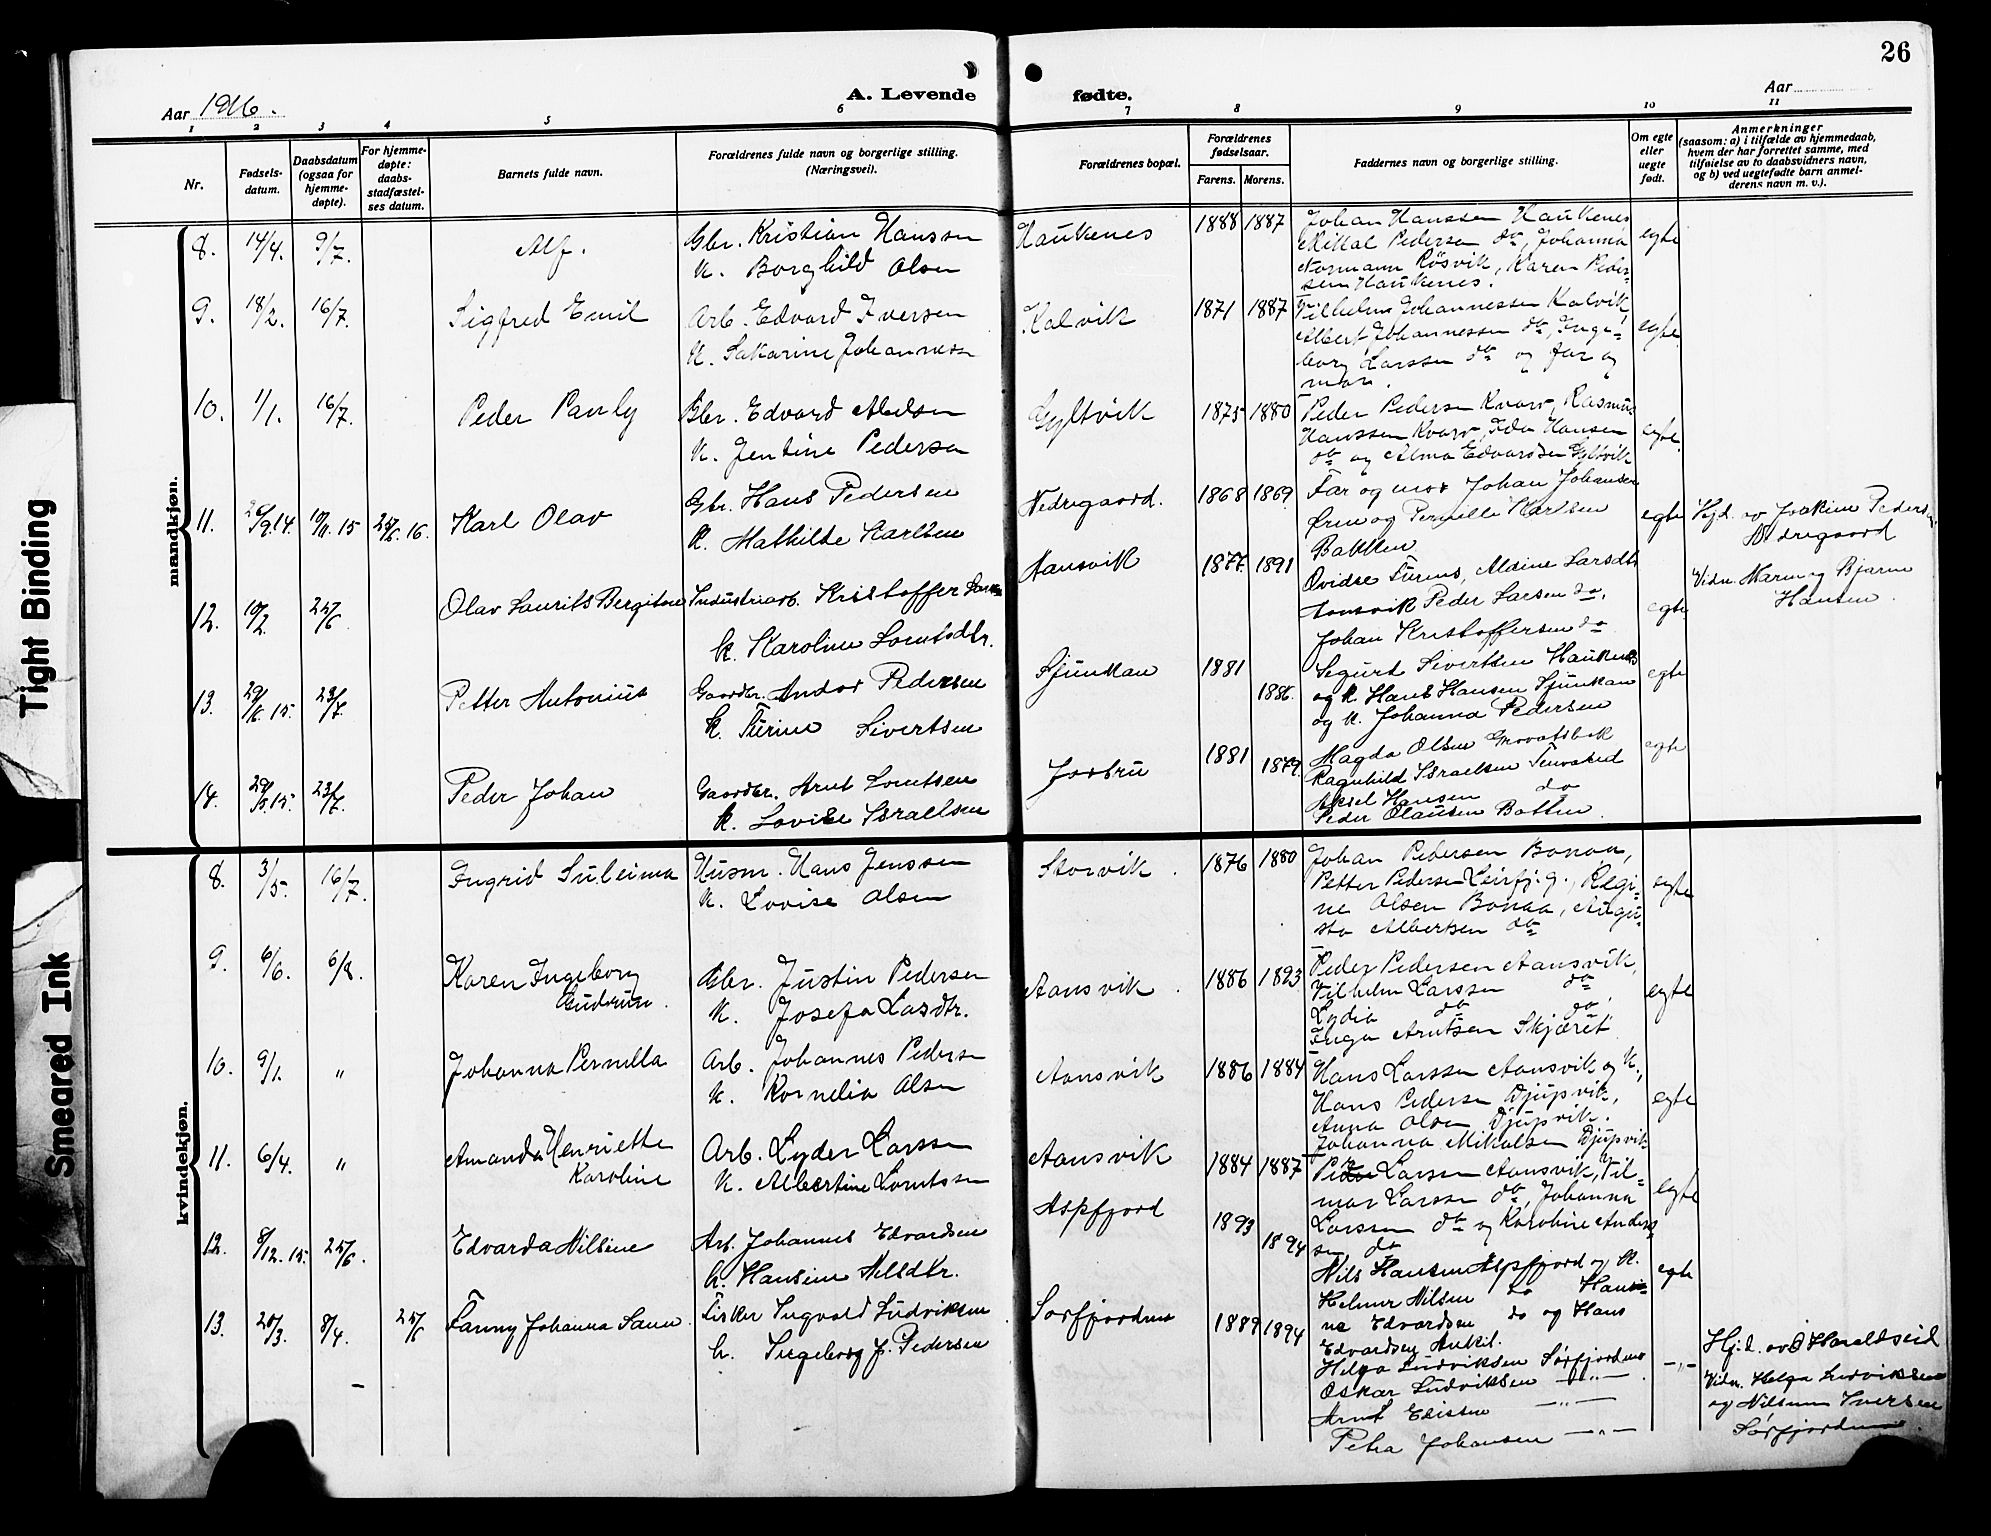 26
Aar 1916.
A. Levende fødte.
Aar
1 2 3 4 5 6 7 8 9 10 11
Nr.
Fødsels-
datum.
Daabsdatum
(ogsaa for
hjemme-
døpte).
For hjemme-
døpte:
daabs-
stadfæstel-
ses datum.
Barnets fulde navn.
Forældrenes fulde navn og borgerlige stilling.
(Næringsvei).
Forældrenes bopæl.
Forældrenes
fødselsaar.
Farens. Morens.
Faddernes navn og borgerlige stilling.
Om egte
eller
uegte
født.
Anmerkninger
(saasom: a) i tilfælde av hjemmedaab,
hvem der har forrettet samme, med
tilføielse av to daabsvidners navn,
og b) ved uegtefødte barn anmel-
derens navn m. v.).
mandkjøn.
8. 14/4. 9/7. Alf.
Gbr. Kristian Hanssen
K. Borghild Olsen
Haukenes 1888 1887
Johan Hanssen Haukenes
Mikal Pedersen do, Johanna
Normann Røsvik, Karen Peder-
sen Haukenes.
egte
9. 18/2. 16/7. Sigfred Emil
Arb. Edvard Iversen
K. Sakarine Johannesen
Kalvik 1871 1887
Vilhelm Johannessen Kalvik,
Albert Johannessen do, Inge-
borg Larssen do og far og
mor.
egte.
10. 1/1. 16/7. Peder Pauly
Gbr. Edvard Abelsen
K. Jentine Pedersen
Gyltvik 1875 1880
Peder Pedersen Kvarv, Rasmus
Hanssen Kvarv, Ida Hansen
do og Alma Edvardsen Gyltvik
egte.
11. 26/9.14. 10/11.15 25/6.16. Karl Olav
Gbr. Hans Pedersen
K. Mathilde Karlsen
Nedregaard. 1868 1869
Far og mor Johan Johansen
Ørnes og Pernille Karlsen
Bakken
egte
Hjd. av Joakim Peders.
Nedregaard
Vidn. Maren og Bjarne
Hansen.
12. 10/2. 25/6 Olav Laurits Bergiton
Industriarb. Kristoffer Larsen
K. Karoline Lorntsdtr.
Aansvik 1877. 1891
Aldine Larsdtr
Aansvik Peder Larsen do.
Johan Kristoffersen do
egte
13. 29/8.15. 23/7. Petter Antonius
Gaardbr. Andor Pedersen
K. Turine Sivertsen
Sjunkan 1881 1886.
Segurd Sivertsen Haukenes
og K. Hans Hansen Sjunkan
og K. Johanna Pedersen
egte
14. 23/7. Peder Johan
Gaardbr. Arnt Lorntsen
K. Lovise Israelsen
Jostru 1881 1879.
Magda Olsen
Ragnhild Israelsen
Aksel Hansen do
Peder Olausen Botten.
egte
kvindekjøn.
8. 3/5. 16/7. Ingrid Suleima
Husm. Hans Jenssen
K. Lovise Olsen
Storvik. 1876 1880
Johan Pedersen Bonaa,
Petter Pedersen Leirfj.g., Regi-
ne Olsen Bonaa, Augu-
sta Albertsen do
egte
9. 6/6. 6/8. Karen Ingeborg
Gudrun.
Gbr. Justin Pedersen
K. Josefa Lasdtr.
Aansvik. 1886 1893
Peder Pedersen Aansvik,
Vilhelm Larssen do,
Lydia do do
Inga Arntsen Skjæret
egte
10. 9/1. " Johanna Pernilla
Arb. Johannes Pedersen
K. Kornelia Olsen
Aansvik 1886 1884
Hans Larssen Aansvik og K.,
Hans Pedersen Djupvik,
Anna Olsen Djupvik.
Johanna Mikalsen Djupvik
egte
11. 6/4. " Amanda Henriette
Karoline
Arb. Lyder Larssen
K. Albertine Lorntssen
Aansvik 1884 1887
Peder Larsen Aansvik, Vil-
mar Larssen do, Johanna
Larssen do og Karoline Anders-
sen do
egte
12. 8/12.15. 25/6. Edvarda Nilsine
Arb. Johannes Edvardsen
K. Hansine Nilsdtr.
Aspfjord 1893 1894
Nils Hansen Aspfjord og K.
Helmer Nilsen do Hansi-
ne Edvardsen do og Hans
Edvardsen
egte
13. 20/3. 8/4. 25/6 Fanny Johanna Saun
Fisker Ingvald Ludviksen
K. Ingeborg J. Pedersen
Sørfjorden 1889 1894
Helga Ludviksen Sørfjorden
Oskar Ludviksen —"—
Arnt Edissen —"—
Petra Johansen —"—
—"—
Hjd. av O Haraldseid
Vidn. Helga Ludviksen
og Nilsine Iversen
Sørfjorden.
Tight Binding
Smeared Ink